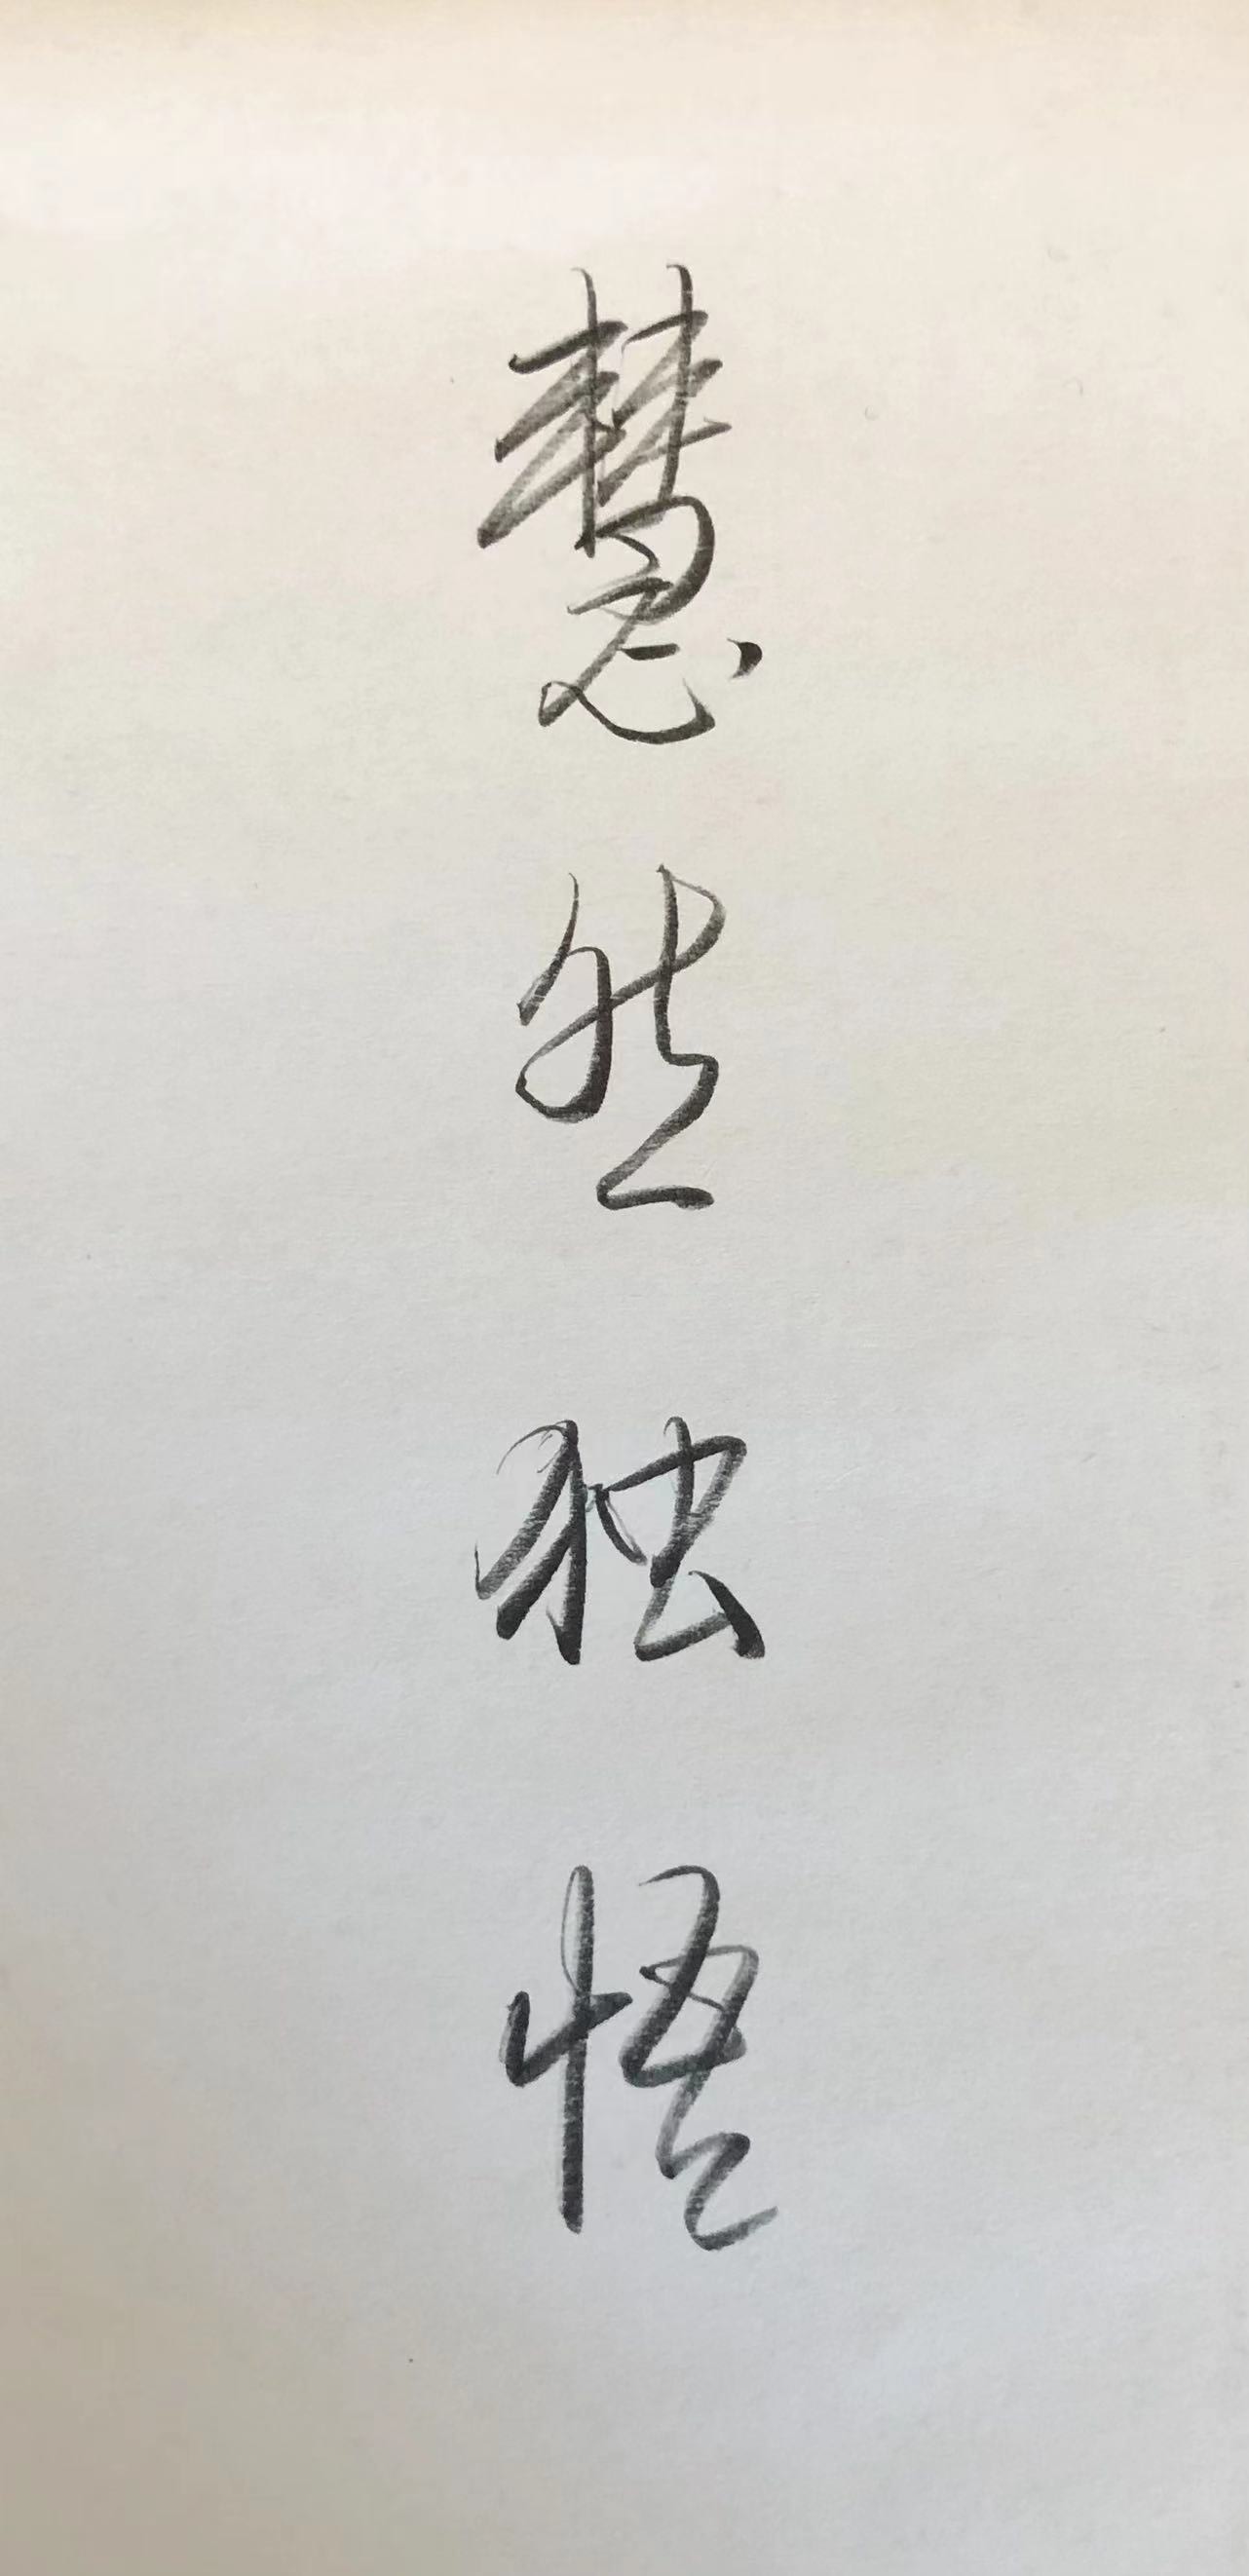 慧然独悟